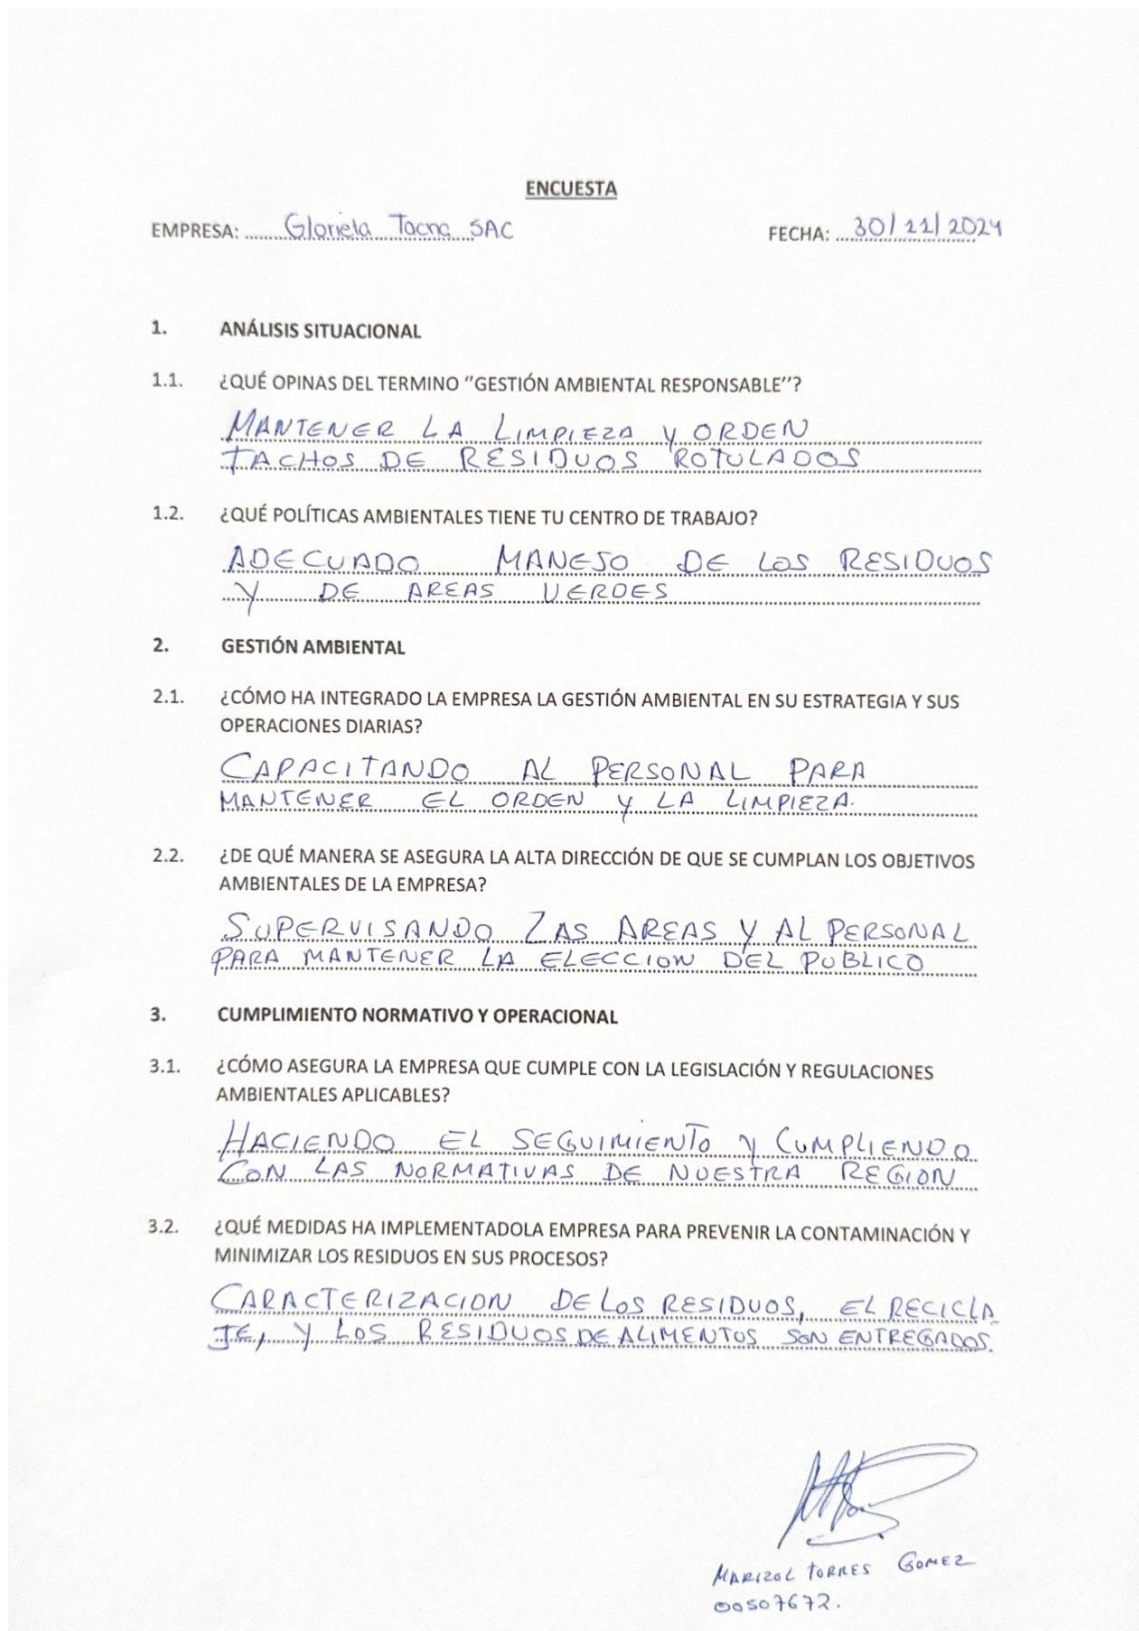 ENCUESTA
EMPRESA: Glorieta Tacna SAC FECHA: 30/11/2024
1. ANÁLISIS SITUACIONAL
1.1. ¿QUÉ OPINAS DEL TERMINO “GESTIÓN AMBIENTAL RESPONSABLE”?
MANTENER LA LIMPIEZA Y ORDEN
TACHOS DE RESIDUOS ROTULADOS
1.2. ¿QUÉ POLÍTICAS AMBIENTALES TIENE TU CENTRO DE TRABAJO?
ADECUADO MANEJO DE LOS RESIDUOS
Y DE AREAS VERDES
2. GESTIÓN AMBIENTAL
2.1. ¿CÓMO HA INTEGRADO LA EMPRESA LA GESTIÓN AMBIENTAL EN SU ESTRATEGIA Y SUS
OPERACIONES DIARIAS?
CAPACITANDO AL PERSONAL PARA
MANTENER EL ORDEN Y LA LIMPIEZA.
2.2. ¿DE QUÉ MANERA SE ASEGURA LA ALTA DIRECCIÓN DE QUE SE CUMPLAN LOS OBJETIVOS
AMBIENTALES DE LA EMPRESA?
SUPERVISANDO LAS AREAS Y AL PERSONAL
PARA MANTENER LA ELECCION DEL PUBLICO
3. CUMPLIMIENTO NORMATIVO Y OPERACIONAL
3.1. ¿CÓMO ASEGURA LA EMPRESA QUE CUMPLE CON LA LEGISLACIÓN Y REGULACIONES
AMBIENTALES APLICABLES?
HACIENDO EL SEGUIMIENTO Y CUMPLIENDO
CON LAS NORMATIVAS DE NUESTRA REGION
3.2. ¿QUÉ MEDIDAS HA IMPLEMENTADOLA EMPRESA PARA PREVENIR LA CONTAMINACIÓN Y
MINIMIZAR LOS RESIDUOS EN SUS PROCESOS?
CARACTERIZACION DE LOS RESIDUOS, EL RECICLA
JE, Y LOS RESIDUOS DE ALIMENTOS SON ENTREGADOS.
MARIZOL TORRES GOMEZ
00507672.